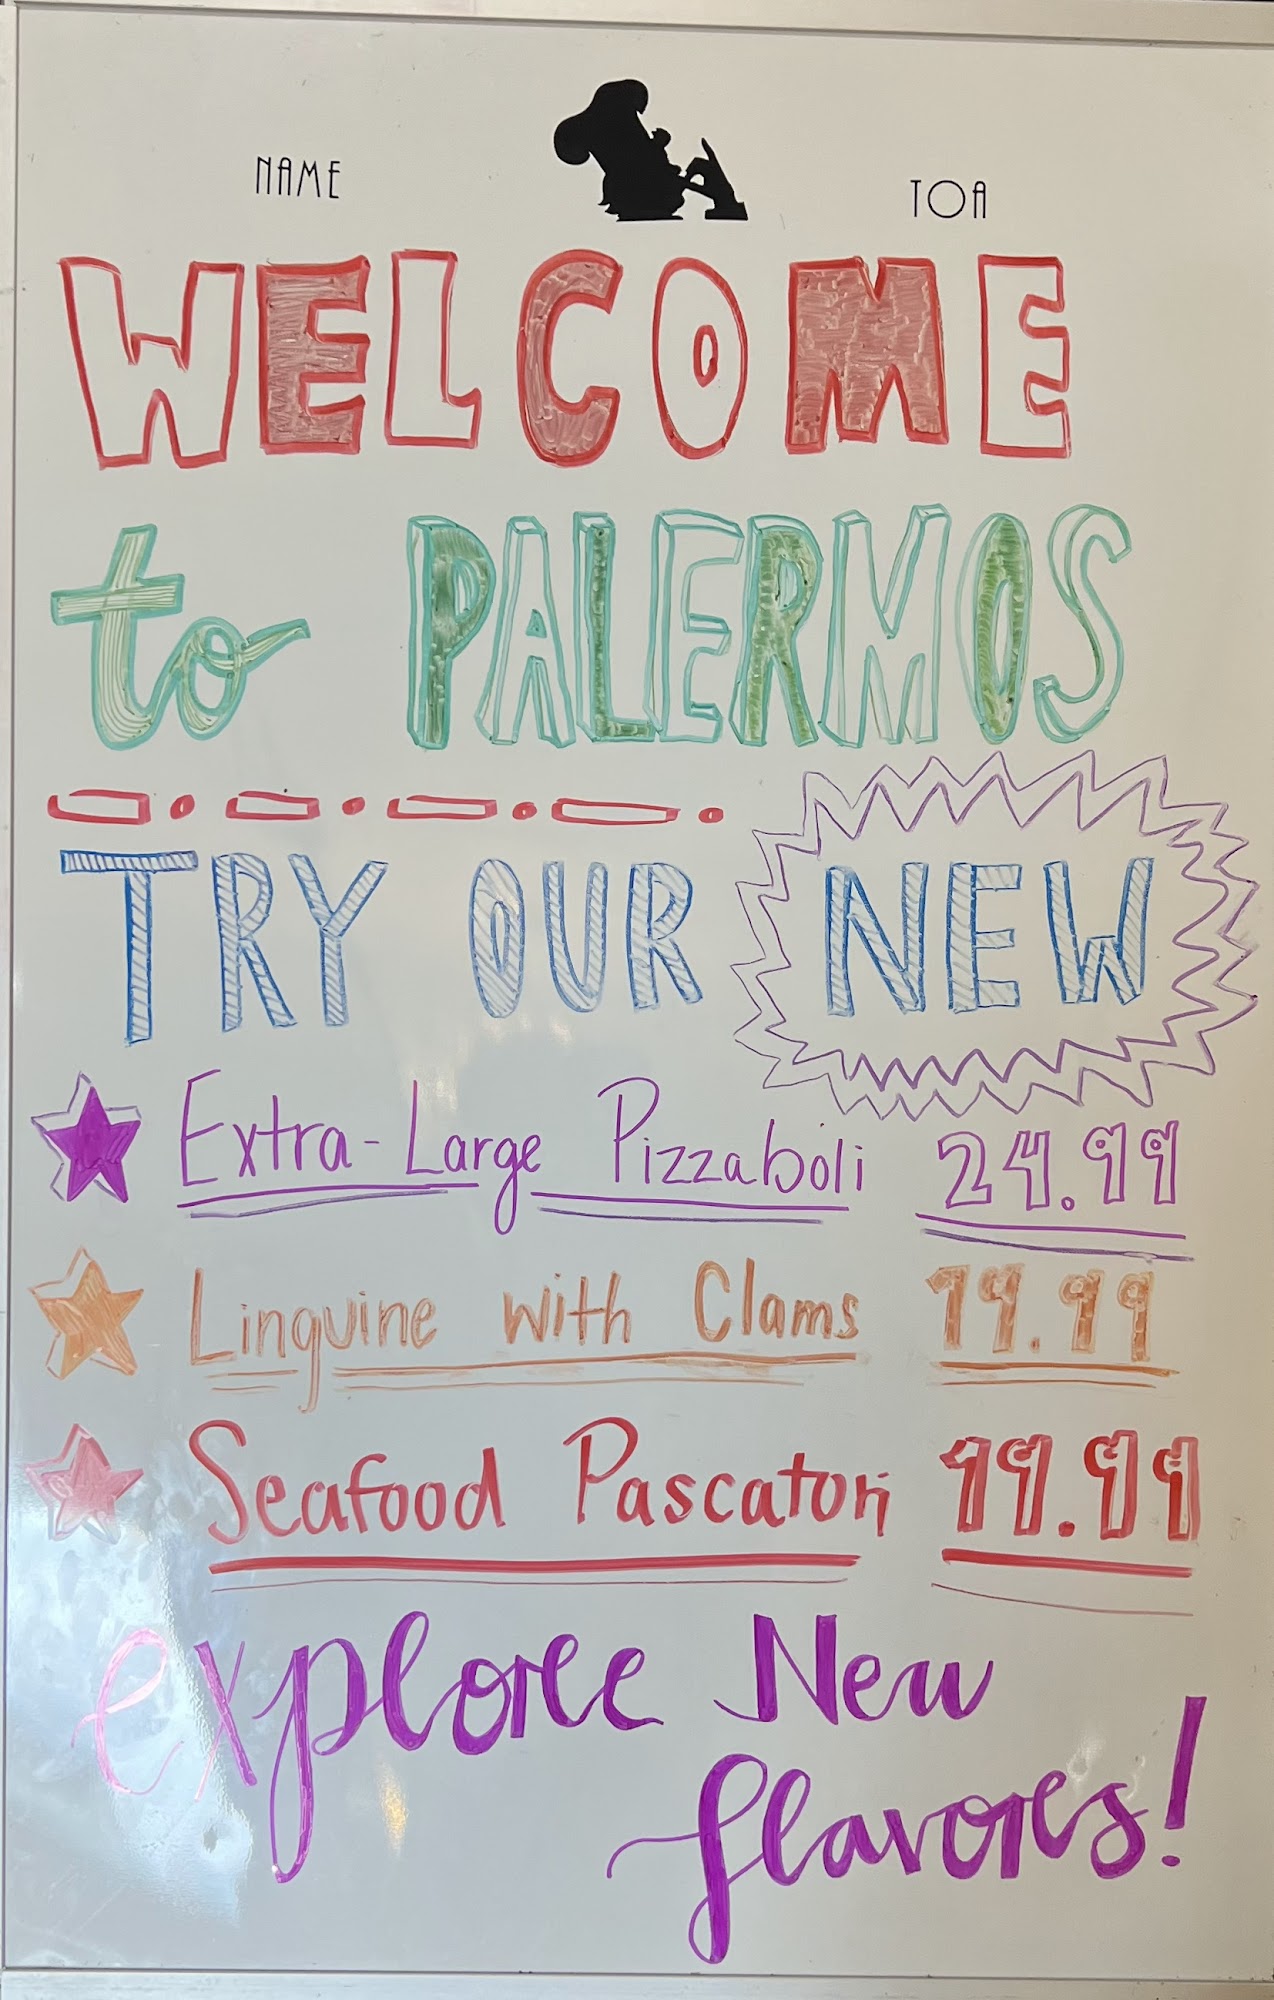 NAME TOA
WELCOME
to PALERMOS
TRY OUR NEW
Extra-Large Pizzaboli 24.99
Linguine with Clams 19.99
Seafood Pascatori 19.99
explore New
flavores!